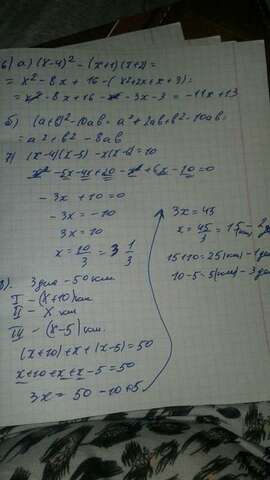 6) а) (x-4)² - (x+1)(x+2)=
= x² - 8x + 16 - (x²+2x+x+3)=
= x² - 8x + 16 - x² - 3x - 3 = -11x + 13
б) (a+b)² - 10ab = a² + 2ab + b² - 10ab =
= a² + b² - 8ab
7) (x-4)(x-5) - x(x-6) = 10
x² - 5x - 4x + 20 - x² + 6x - 10 = 0
- 3x + 10 = 0
- 3x = -10
3x = 10
x = 10/3 = 3 1/3
8). 3 дня - 50 км.
I - (x+10) км
II - x км
III - (x-5) км.
(x+10) + x + (x-5) = 50
x+10+x+x-5 = 50
3x = 50 - 10 + 5
3x = 45
x = 45/3 = 15 (км) - 2
15 + 10 = 25 (км) - 1
10 - 5 = 5 (км) - 3